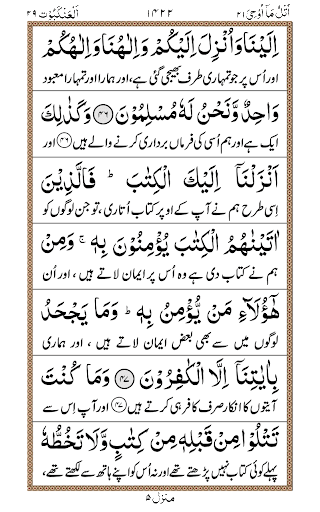 اُتْلُ مَآ اُوْحِيَ ٢١ ١٤٢٢ اَلْعَنْكَبُوْت ٢٩
اِلَيْنَا وَاُنْزِلَ اِلَيْكُمْ وَاِلٰهُنَا وَاِلٰهُكُمْ
اور اُس پر جو تمہاری طرف بھیجی گئی ہے، اور ہمارا اور تمہارا معبود
وَاحِدٌ وَّنَحْنُ لَهٗ مُسْلِمُوْنَ ﴿٤٦﴾ وَكَذٰلِكَ
ایک ہے اور ہم اُسی کی فرماں برداری کرنے والے ہیں ﴿٤٦﴾ اور
اَنْزَلْنَآ اِلَيْكَ الْكِتٰبَ ؕ فَالَّذِيْنَ
اِسی طرح ہم نے آپ کے اوپر کتاب اُتاری، تو جن لوگوں کو
اٰتَيْنٰهُمُ الْكِتٰبَ يُؤْمِنُوْنَ بِهٖ ۚ وَمِنْ
ہم نے کتاب دی ہے وہ اس پر ایمان لاتے ہیں ، اور اُن
هٰٓؤُلَآءِ مَنْ يُّؤْمِنُ بِهٖ ؕ وَمَا يَجْحَدُ
لوگوں میں سے بھی بعض ایمان لاتے ہیں ، اور ہماری
بِاٰيٰتِنَآ اِلَّا الْكٰفِرُوْنَ ﴿٤٧﴾ وَمَا كُنْتَ
آیتوں کا انکار صرف کافر ہی کرتے ہیں ﴿٤٧﴾ اور آپ اِس سے
تَتْلُوْا مِنْ قَبْلِهٖ مِنْ كِتٰبٍ وَّلَا تَخُطُّهٗ
پہلے کوئی کتاب نہیں پڑھتے تھے اور نہ اُس کو اپنے ہاتھ سے لکھتے تھے،
منزل ٥